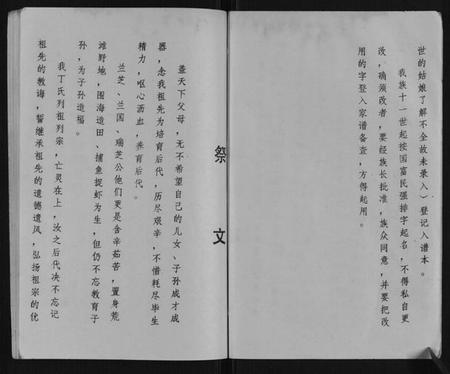 世的姑娘了解不全故未录入）登记入谱本。
我族十一世起按国富民强排字起名，不得私自更
改，确须改者，要经族长批准，族众同意，并要把改
用的字登入家谱备查，方得起用。
祭文
盖天下父母，无不希望自己的儿女、子孙成才成
器，念我祖先为培育后代，历尽艰辛，不惜耗尽毕生
精力，呕心沥血，养育后代。
兰芝、兰国、瑞芝公他们更是含辛茹苦，置身荒
滩野地，围海造田、捕鱼捉虾为生，但仍不忘教育子
孙，为子孙造福。
我丁氏列祖列宗，亡灵在上，汝之后代决不忘记
祖先的教诲，誓继承祖先的道德遗风，弘扬祖宗的优